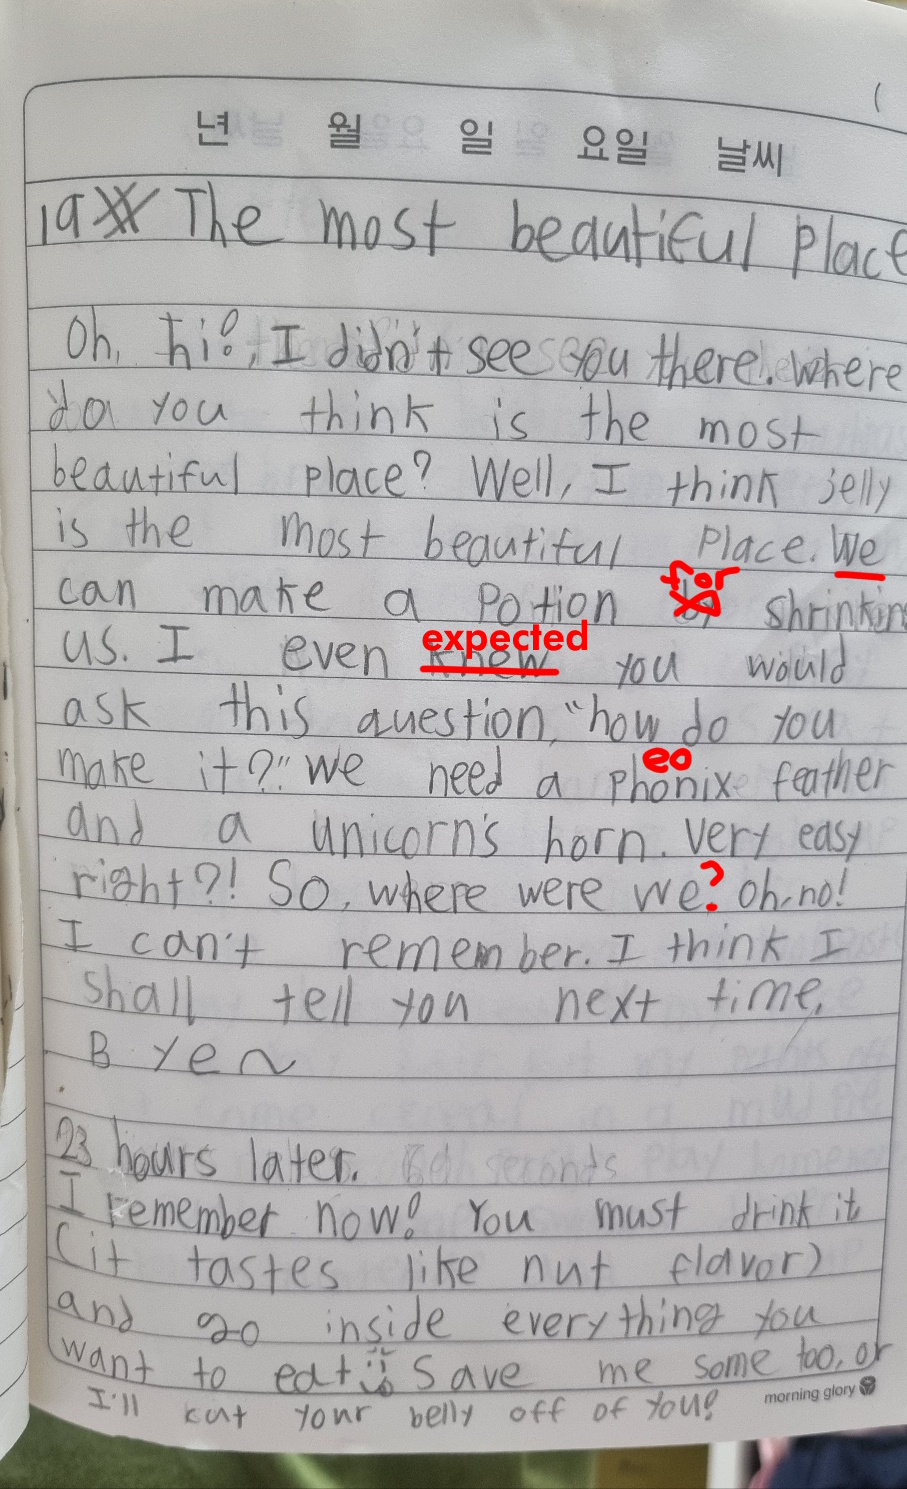 년 월 일 요일 날씨
19 The most beautiful Place
Oh, hi!, I didn't see you there. Where
do you think is the most
beautiful place? Well, I think jelly
is the most beautiful Place. We
for
can make a Potion by shrinking
expected
us. I even knew you would
ask this question, "how do you
eo
make it?" We need a phonix feather
and a unicorn's horn. Very easy
right?! So, where were we? Oh, no!
I can't remember. I think I
shall tell you next time.
Bye~
23 hours later.
I remember now! You must drink it
(it tastes like nut flavor)
and go inside everything you
want to eat Save me some too, or
I'll kut your belly off of you!
morning glory